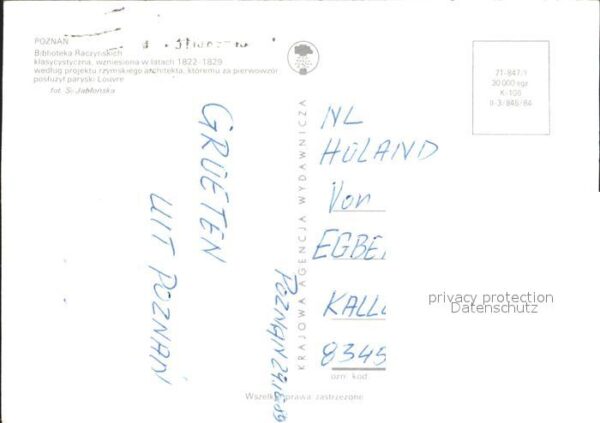 POZNAŃ
Biblioteka Raczyńskich
klasycystyczna, wzniesiona w latach 1822-1829
według projektu rzymskiego architekta, któremu za pierwowzór
posłużył paryski Louvre
fot. S. Jabłońska
KRAJOWA AGENCJA WYDAWNICZA
71-847/1
30 000 egz
K-105
II-3/846/84
GRUETEN
UIT POZNAŃ
POZNAŃ
NL
HOLAND
Von
EGBE
KALL
8345
ozn. kod.
privacy protection
Datenschutz
Wszelkie prawa zastrzeżone